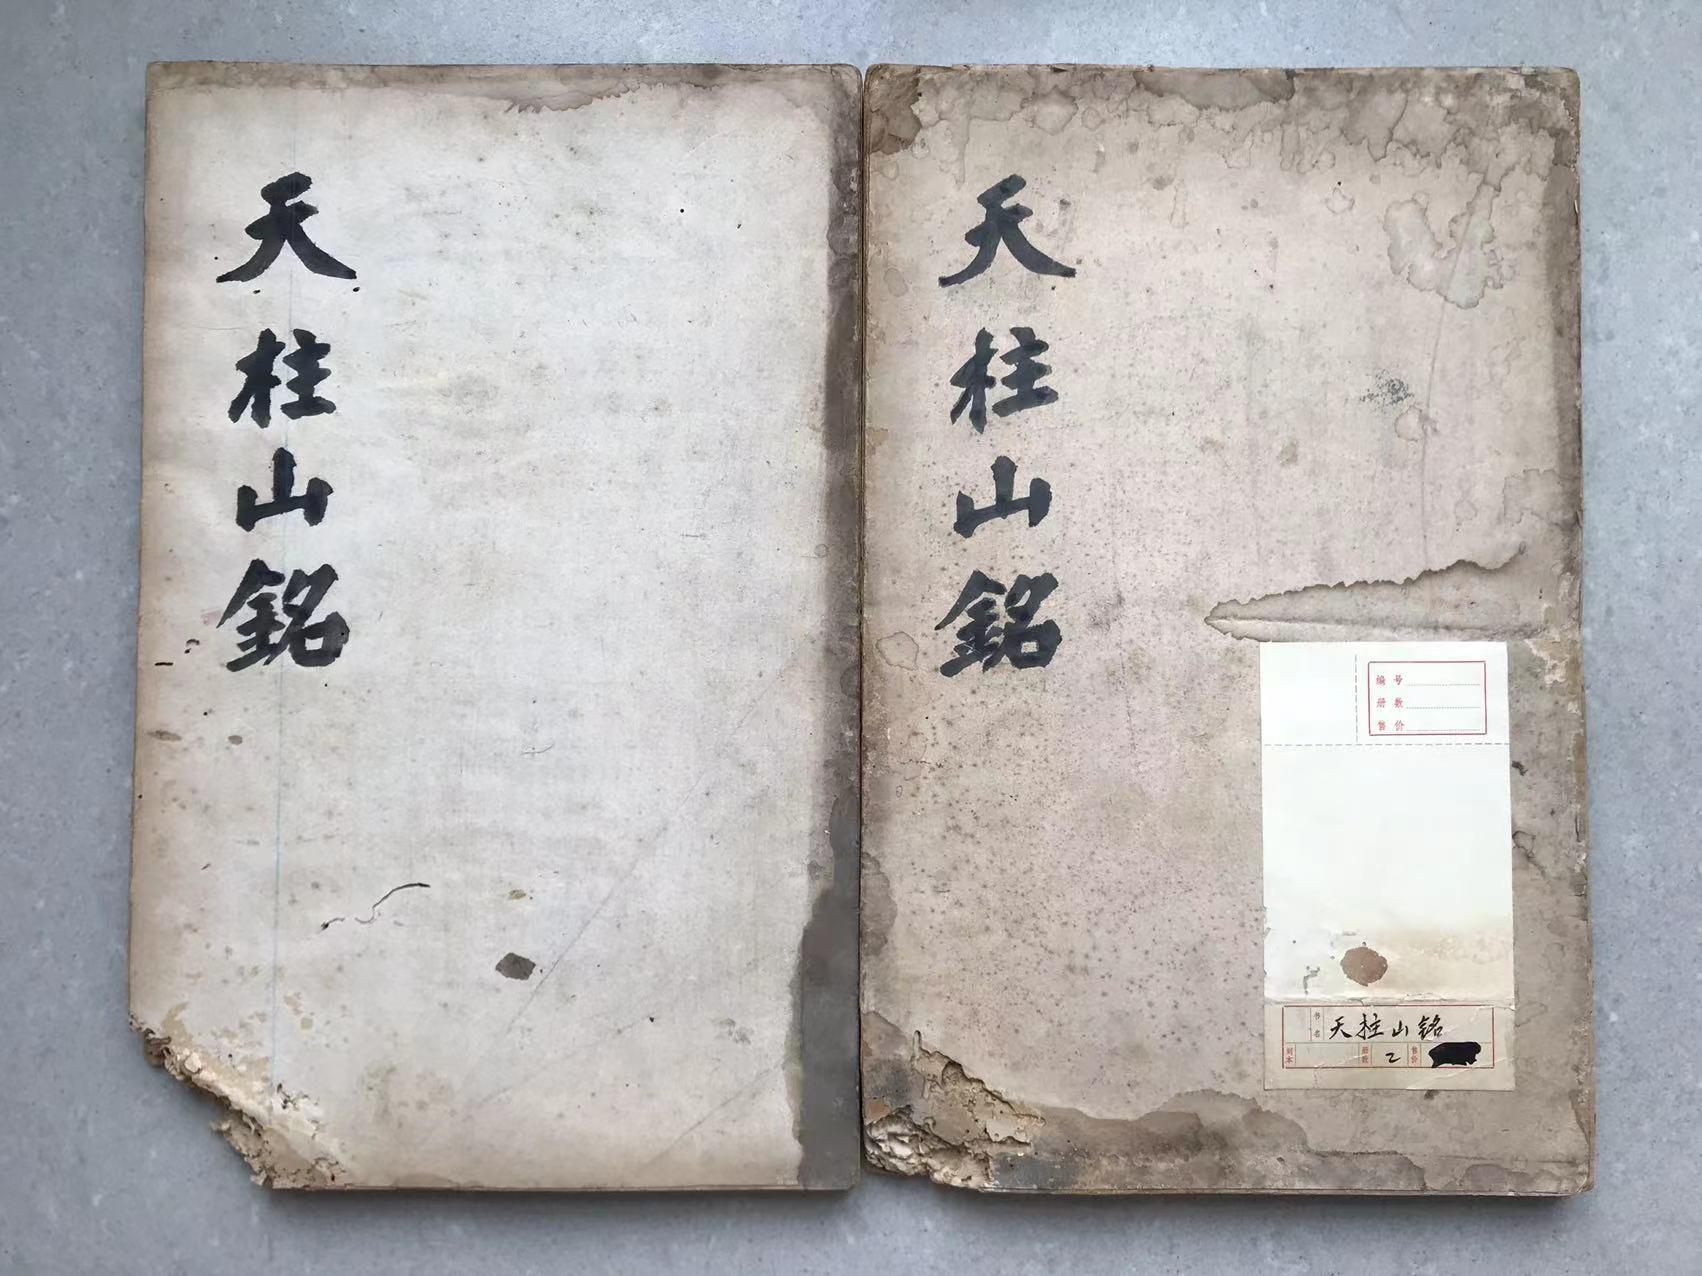 天柱山銘
天柱山銘
编号
册数
售价
书名 天柱山銘
刻本 册数 2 售价